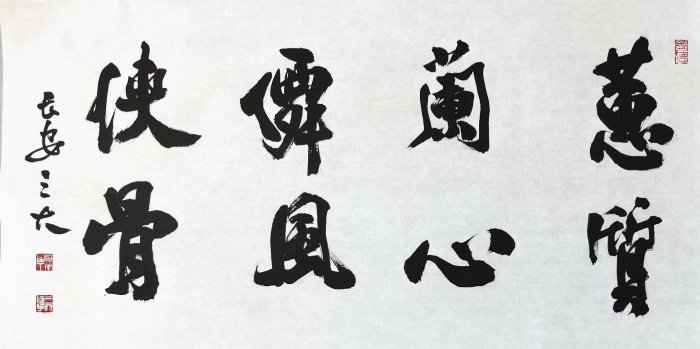 蕙質
蘭心
僊風
俠骨
長安三大